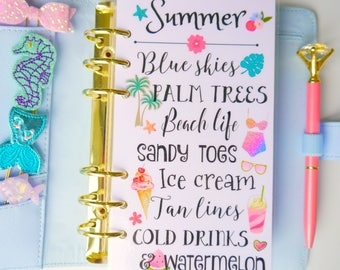 Summer
Blue skies
PALM TREES
Beach life
SANDY TOES
Ice cream
Tan lines
COLD DRINKS
& WATERMELON